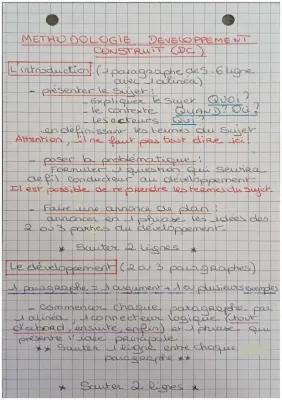 METHODOLOGIE DEVELOPPEMENT
CONSTRUIT (DC)
L'introduction (1 paragraphe de 5-6 ligne
avec 1 alinéa)
- présenter le sujet:
- expliquer le sujet QUOI?
- le contexte QUAND? OÙ?
- les acteurs QUI?
en définissant les termes du sujet
Attention, il ne faut pas tout dire ici!
- poser la problématique:
formuler 1 question qui servira
de fil conducteur au développement.
Il est possible de reprendre les termes du sujet.
- Faire une annonce de plan:
annoncer en 1 phrase les idées des
2 ou 3 parties du développement.
* Sauter 2 lignes *
Le développement (2 ou 3 paragraphes)
1 paragraphe = 1 argument + 1 ou plusieurs exemples
- Commencer chaque paragraphe par
1 alinéa, 1 connecteur logique (tout
d'abord, ensuite, enfin) et 1 phrase qui
présente l'idée principale
** Sauter 1 ligne entre chaque
paragraphe **
* Sauter 2 lignes *